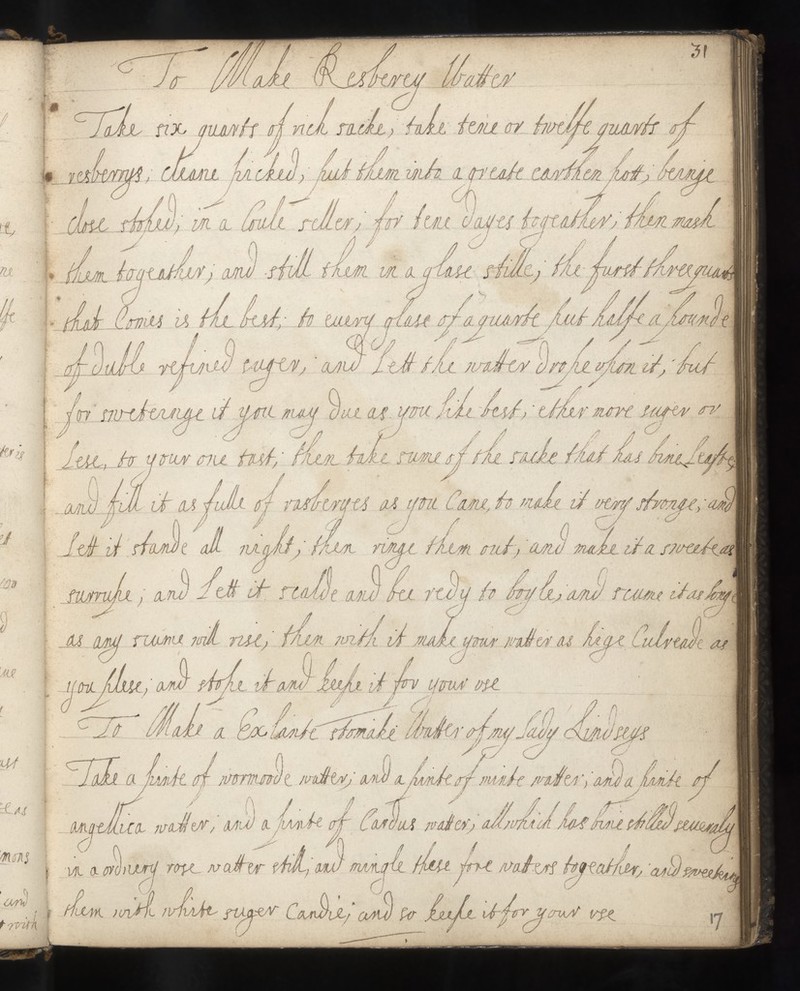 31
To Make Resberey Watter
Take six quarts of rich sacke, take tene or twelfe quarts of
resberrys, cleane picked, put them into a greate earthen pott, beinge
close stoped, in a Coule seller, for tene dayes togeather, then mash
them togeather, and still them in a glase stille, the furst three quarts
that Comes is the best, to euery glase of a quarte put halfe a pounde
of duble refined suger, and Lett the watter drope vpon it, but
for sweteinge it you may due as you like best, ether more suger or
Lese, to your one tast, then take sume of the sacke that has bine Leafte,
and fill it as fulle of rasberyes as you Cane, to make it very stronge, and
Lett it stande all night, then ringe them out, and make it a sweete as
surrupe, and Lett it scalde and bee redy to boyle, and scume it as longe
as any scume will rise, then with it make your watter as hige Culreade as
you plese, and stope it and keepe it for your vse
To Make a Exlante stomake Watter of my Lady Lindseys
Take a pinte of wormoode watter, and a pinte of minte watter, and a pinte of
angellica watter, and a pinte of Cardus watter, all which has bine stilled seueraly
in a ordnery rose watter still, and mingle these fore watters togeather, and sweeteing
them with white suger Candie, and so keepe it for your vse
17